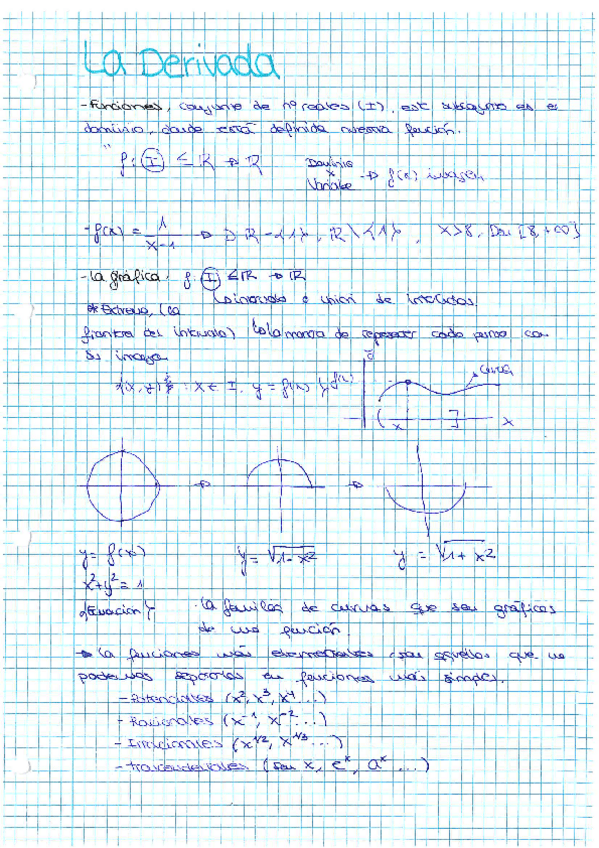 La Derivada
- Funciones, conjunto de nº reales (I), est subconjunto es el
dominio, donde está definida nuestra función.
f: I ≤ ℝ → ℝ Dominio
x → f(x) imagen
Variable
- f(x) = 1/(x-1) → D ℝ -{1}, ℝ\{1}, x>8, Dom [8,+∞)
- La gráfica. f: I ≤ ℝ → ℝ
* Extremo, (la intervalo o unión de intervalos
frontera del intervalo) la manera de representar cada punto con
su imagen
{(x,y) : x ∈ I, y = f(x)} f(x) curva
( x ] x
y = f(x) y = √1-x² y = √1+x²
x²+y² = 1
{Ecuación} La familia de curvas que son gráficas
de una función.
→ La funciones más elementales son aquellas que no
podemos separarlas en funciones más simples.
- Potenciales (x², x³, x⁴ ...)
- Racionales (x⁻¹, x⁻² ...)
- Irracionales (x^1/2, x^1/3 ...)
- Trascendentales (sen x, eˣ, aˣ ...)